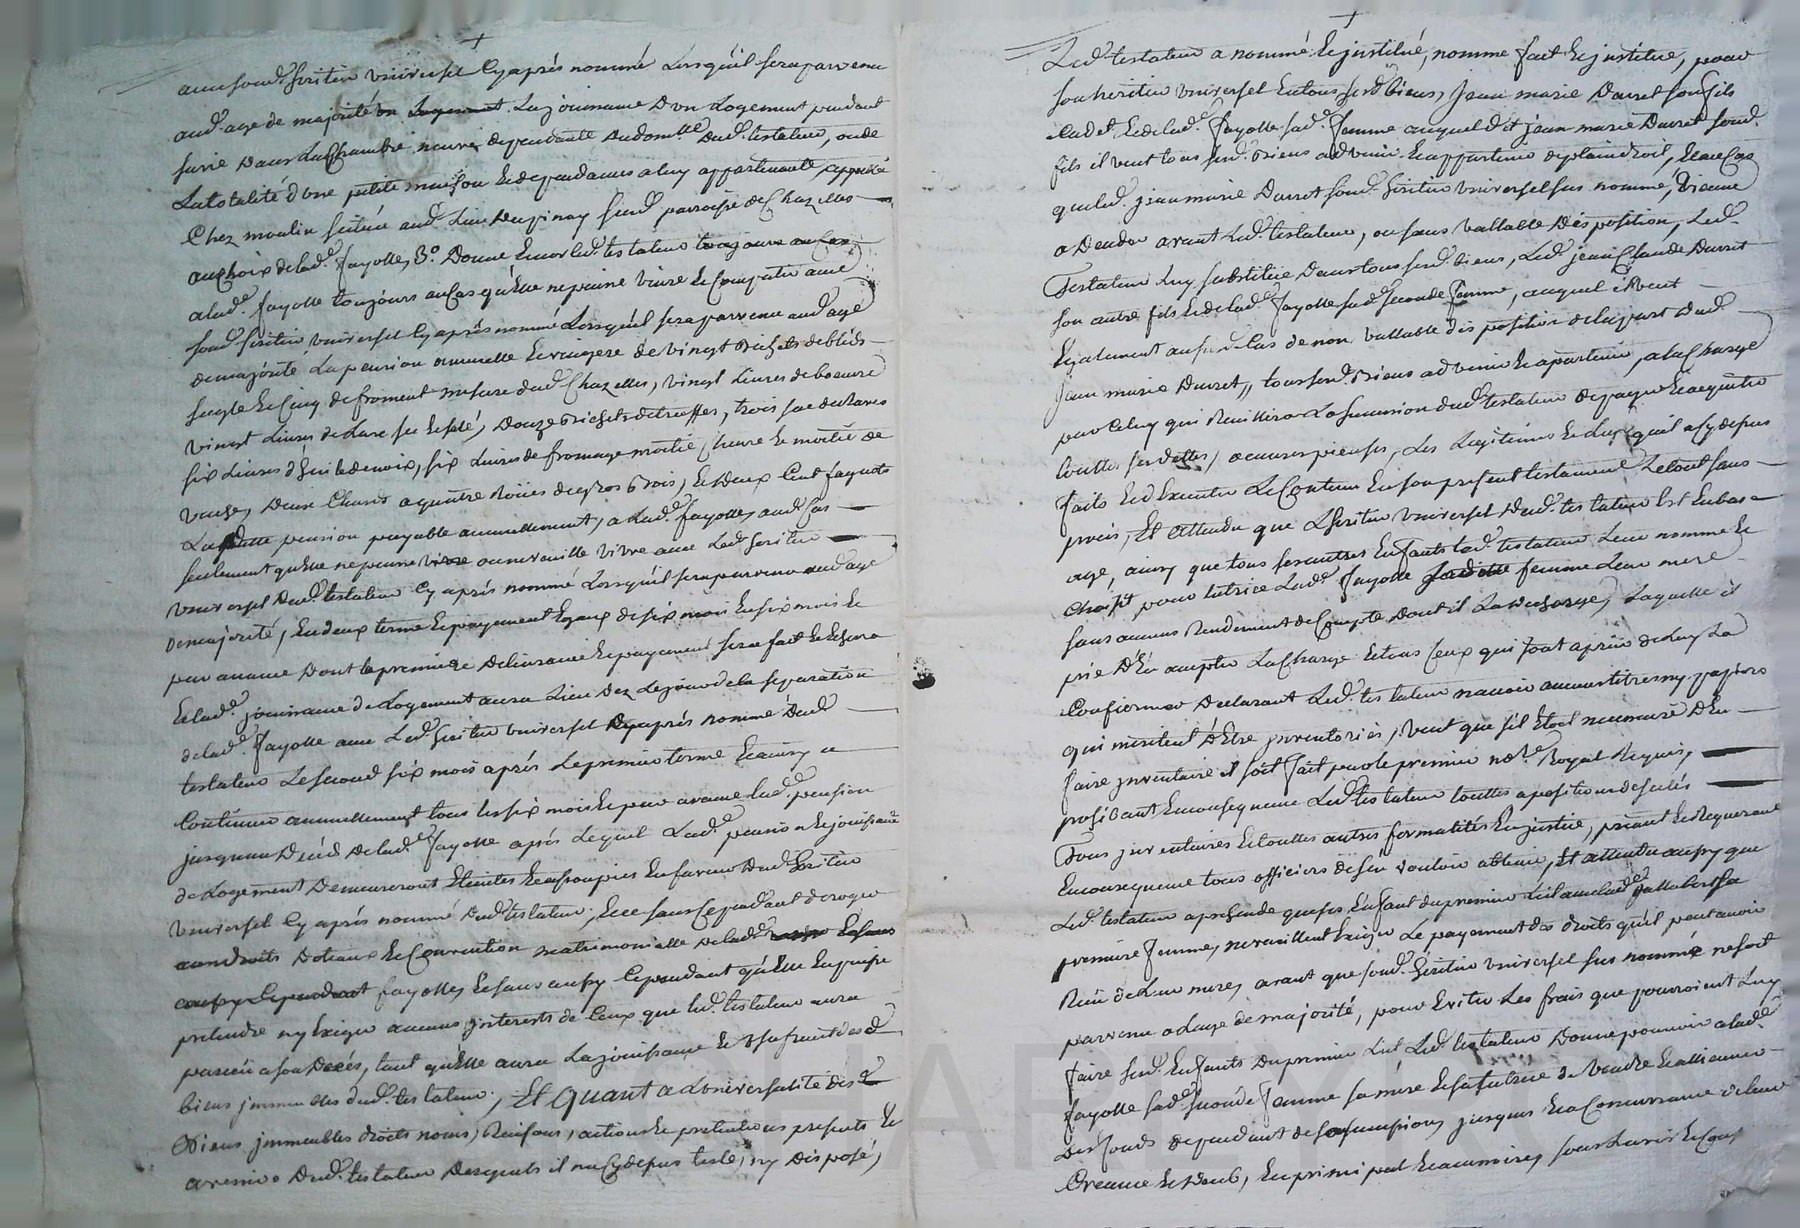 avec sond. heritier universel cy après nommé Lorsqu'il sera parvenu
aud. age de majorité La jouissance d'un Logement pendant
sa vie dans La Chambre neuve dependante du domlle dud. testateur, ou de
La totalité d'une petite maison et dependances a luy appartenante
Chez moulin scituée aud. Lieu Dupinay susd. parroisse de Chazelles
au choix de lad.e fayolle, 3.o Donne encor led. testateur
a lad.e fayolle toujours au cas qu'elle ne puisse vivre et Compatir avec
sond. heritier universel cy après nommé Lorsqu'il sera parvenu aud. age
de majorité La pension annuelle et viagere de vingt bichets de bleds
seigle et Cinq de froment mesure dud. Chazelles, vingt Livres de beurre
vingt Livres de Lard sec et salé, Douze bichets de truffes, trois sac de raves
six Livres d'huile de noix, six Livres de fromage moitié Chevre et moitié de
vaches, Deux Chars a quatre Roües de gros bois, et Deux Cent fagots
pension payable annuellement, a Lad.e fayolle, aud. Cas
seulement qu'elle ne peuve vivre ou ne veuille vivre avec Led. heritier
universel dud. testateur Cy après nommé Lorsqu'il sera parvenu aud. age
de majorité, en deux terme et payement egaux de six mois en six mois et
par avance Dont la premiere delivrance et payement sera fait et Echera
et lad.e jouissance de Logement aura Lieu Dez Le jour de la separation
de lad.e fayolle avec Led. heritier universel cy après nommé dud.
testateur Le second six mois après Le premier terme et ainsy a
Continuer annuellement tous les six mois et par avance lad.e pension
jusqu'au Decès de lad.e fayolle après Lequel Lad.e pension et jouissance
de Logement Demeureront Eteintes et assoupies en faveur dud. heritier
universel Cy après nommé dud. testateur, et ce sans Cependant deroger
aux droits Dotaux et Convention matrimonielle de lad.e
fayolle, et sans aussy Cependant qu'elle en puisse
pretendre ny Exiger aucuns jnterests de Ceux que led. testateur aura
perceu a son Decés, tant qu'elle aura La jouissance et usufruit des d.
biens jmmeubles dud. testateur, Et Quant a L'universalité des d.
Biens jmmeubles droits noms, Raisons, actions et pretentions presents et
avenir Dud. testateur Desquels il n'a Cy depus testé, ny disposé,
Led. testateur a nommé et justitué, nomme fait et justitue, pour
son heritier universel en tous ses d. biens, Jean marie Durret son fils
Cadet, et de lad.e fayolle sad.e femme auquel dit jean marie Durret sond.
fils il veut tous sesd. Biens advenir et appartenir de plain droit, et au Cas
que led. jean marie Durret sond. heritier universel sus nommé, vienne
a Deceder avant Led. testateur, ou sans vallable Disposition, Led.
Testateur Luy substitue Dans tous sesd. biens, Led. jean Claude Durret
son autre fils et de lad.e fayolle sad.e seconde femme, auquel il veut
Egalement au Cas de non vallable disposition de la part dud.
jean marie Durret, tous sesd. Biens advenir et apartenir, a la Charge
par Celuy qui Recuillira La succession dud. testateur de payer et acquitter
touttes ses dettes, œuvres pieuses, Les Legitimes et Legs qu'il a Cy depus
faits et d'Executer Le Contenu en son present testament Le tout sans
procés, Et attendu que L'heritier universel dud. testateur Est en bas
age, ainsy que tous ses autres Enfants led. testateur Leur nomme et
choisit pour tutrice Lad.e fayolle femme Leur mere
sans aucuns Rendement de Compte Dont il La decharge, Laquelle il
prie D'En accepter La Charge et tous Ceux qui sont aprier de Luy La
Confirmer Declarant Led. testateur n'avoir aucuns titres ny papiers
qui meritent D'Etre jnventoriés, veut que s'il Etoit necessaire D'En
faire jnventaire il soit fait par le premier no.re Royal Requis,
prohibant en consequence Led. testateur touttes apositions de scelés
Tous jnventaires et touttes autres formalités en justice, priant et Requerant
En consequence tous officiers de s'en vouloir abtenir, Et attendu aussy que
Led. testateur aprehende que ses Enfant du premier Lit
premiere femme, ne veuillent Exiger Le payement des droits qu'il peut avoir
Reçu de Leur mere, avant que sond. heritier universel sus nommé ne soit
parvenu a L'age de majorité, pour Eviter Les frais que pourroient Luy
faire sesd. Enfants du premier Lit Led. testateur Donne pouvoir a lad.e
fayolle sad.e seconde femme sa mere et sa tutrice de vendre et alliener
des fonds dependant de sa succession, jusques a Concurrance de leur
Creance et Deub, en principal et accessoires, sous L'avis et Conseil